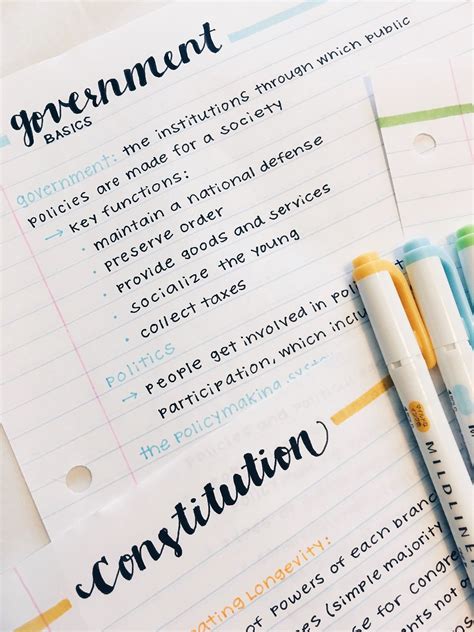 government
BASICS
government: the institutions through which public
policies are made for a society
→ key functions:
• maintain a national defense
• preserve order
• provide goods and services
• socialize the young
• collect taxes
politics
→ people get involved in
participation, which
the policymaking system
Constitution
Longevity:
of powers of each
(simple majority
for
not
MILDLINE